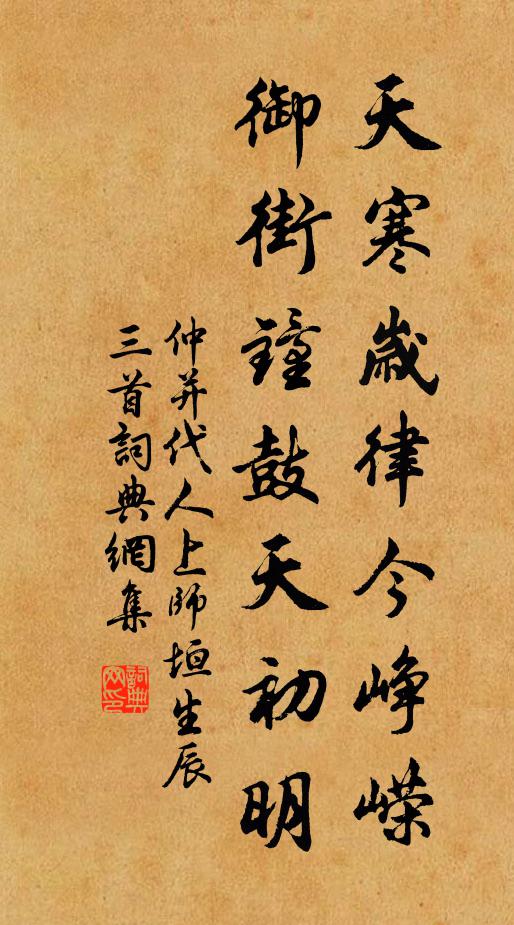 天寒歲律今崢嶸
御街鐘鼓天初明
仲并代人上師垣生辰
三首詞典網集
詞典網印